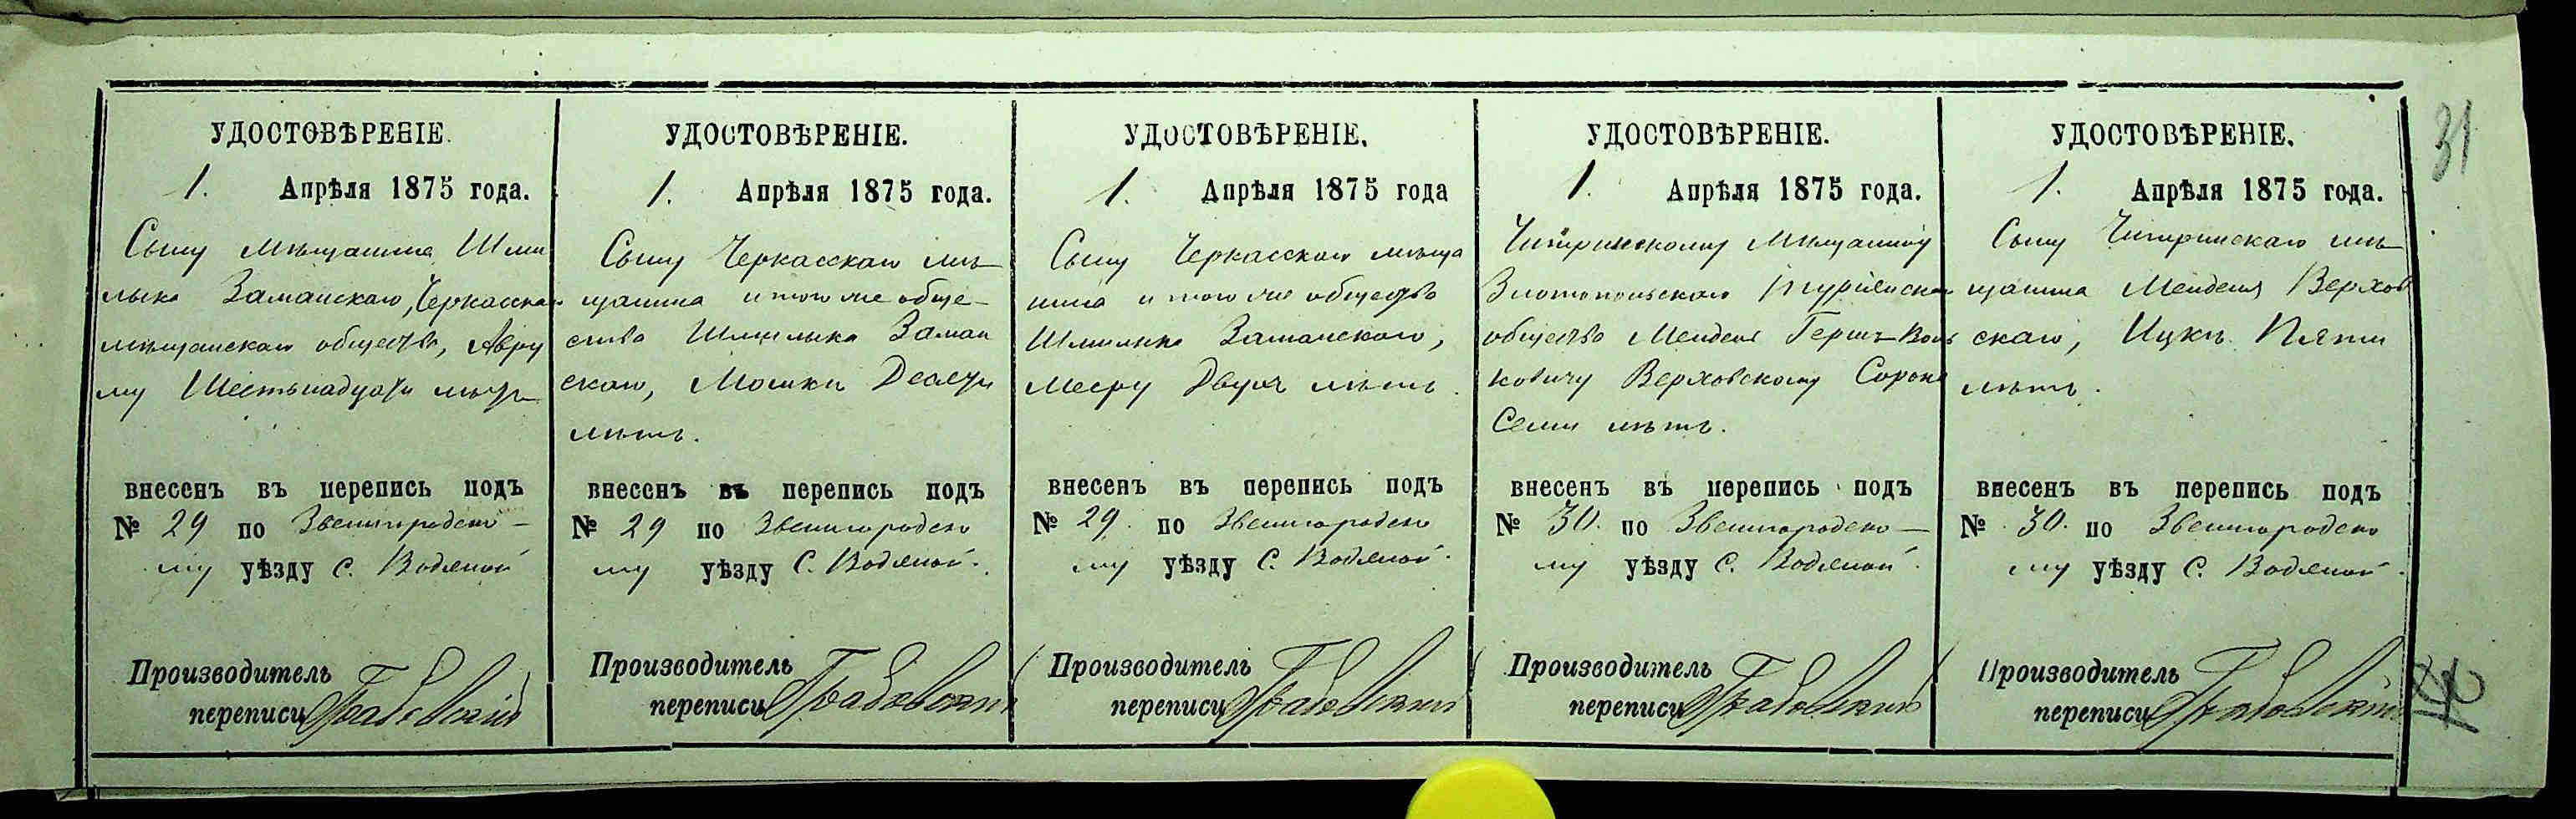 31
УДОСТОВѢРЕНІЕ.
1. Апрѣля 1875 года.
Сыну мѣщанина Шми
лыка Заманскаго, Черкасскаго
мѣщанскаго общества, Авру
му Шестьнадцати лѣтъ
внесенъ въ перепись подъ
№ 29 по Звенигородско-
му уѣзду С. Водяной
Производитель
переписи Грабовскій
УДОСТОВѢРЕНІЕ.
1. Апрѣля 1875 года.
Сыну Черкасскаго мѣ-
щанина и того же обще-
ства Шмилыка Заман
скаго, Мошки Десяти
лѣтъ.
внесенъ въ перепись подъ
№ 29 по Звенигородско
му уѣзду С. Водяной.
Производитель
переписи Грабовскій
УДОСТОВѢРЕНІЕ.
1. Апрѣля 1875 года
Сыну Черкасскаго мѣща
нина и того же общества
Шмилыка Заманскаго,
Мееру Двухъ лѣтъ.
внесенъ въ перепись подъ
№ 29. по Звенигородско
му уѣзду С. Водяной.
Производитель
переписи Грабовскій
УДОСТОВѢРЕНІЕ.
1. Апрѣля 1875 года.
Чигиринскому Мѣщанину
Златопольскаго
общества Менделю Гершъ-Воль
ковичу Верховскому Сорокъ
Семи лѣтъ.
внесенъ въ перепись подъ
№ 30. по Звенигородско-
му уѣзду С. Водяной.
Производитель
переписи Грабовскій
УДОСТОВѢРЕНІЕ.
1. Апрѣля 1875 года.
Сыну Чигиринскаго мѣ-
щанина Менделя Верхов
скаго, Ицкѣ Пяти
лѣтъ.
внесенъ въ перепись подъ
№ 30. по Звенигородско
му уѣзду С. Водяной.
Производитель
переписи Грабовскій